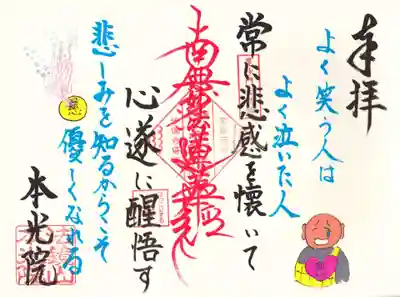 奉拝
よく笑う人は
よく泣いた人
常に悲感を懐いて
南無妙法蓮華経
心遂に醒悟す
悲しみを知るからこそ
優しくなれる
悲
本光院